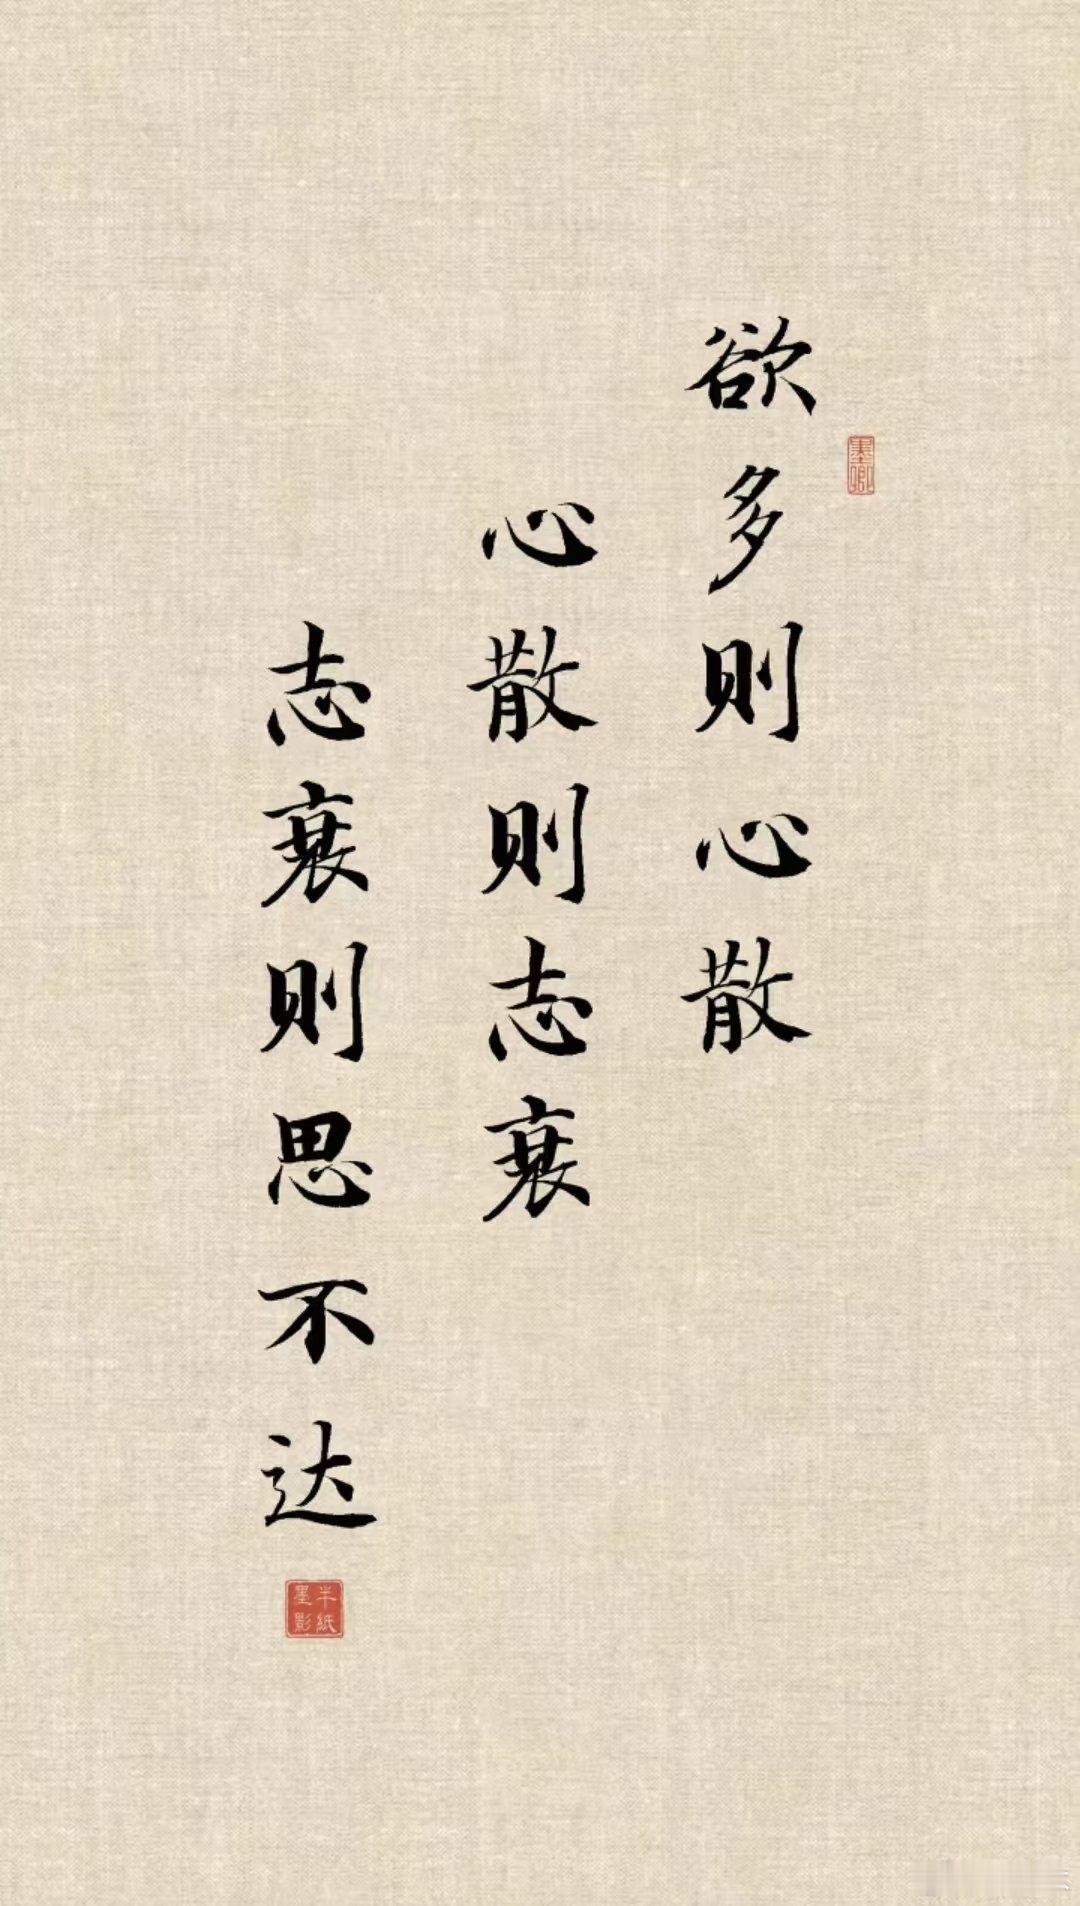 欲多则心散
心散则志衰
志衰则思不达
墨卿
半纸
墨影